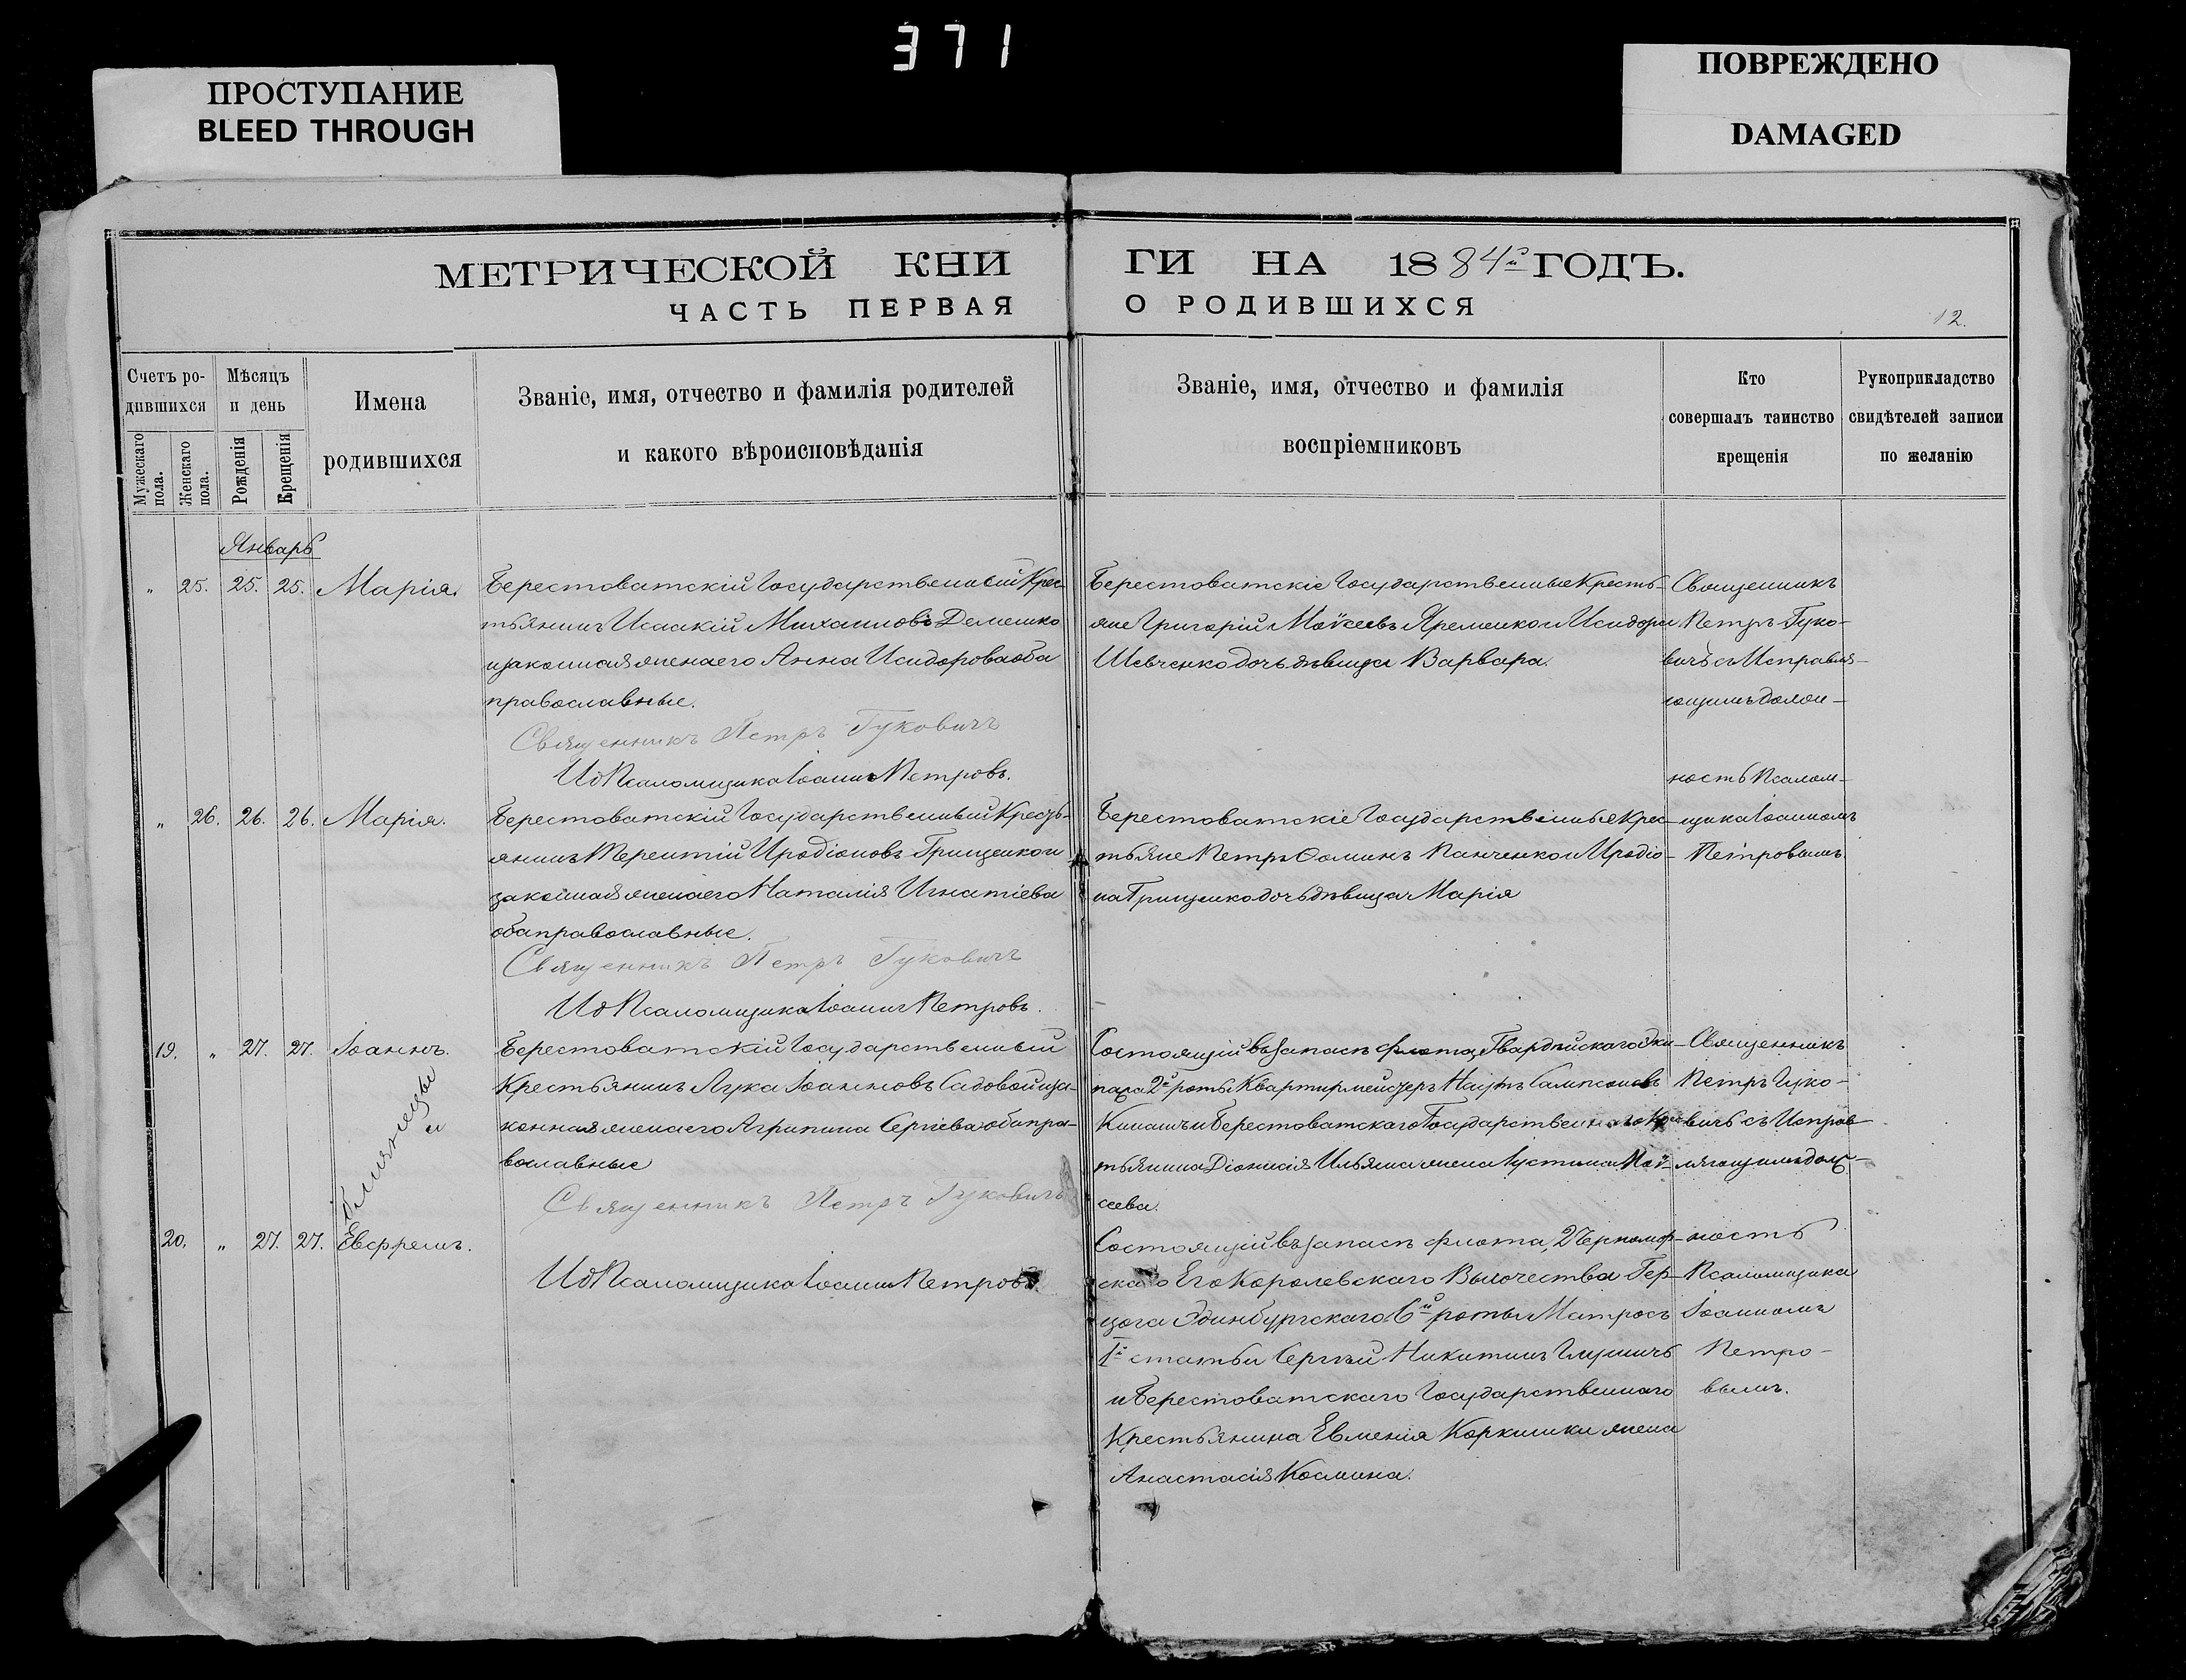 371
ПРОСТУПАНИЕ
BLEED THROUGH
ПОВРЕЖДЕНО
DAMAGED
МЕТРИЧЕСКОЙ КНИ
ГИ НА 1884й ГОДЪ.
ЧАСТЬ ПЕРВАЯ
О РОДИВШИХСЯ
12.
Счетъ ро-
дившихся
Мужескаго пола.
Женскаго пола.
Мѣсяцъ
и день
Рожденія
Крещенія
Имена
родившихся
Званіе, имя, отчество и фамилія родителей
и какого вѣроисповѣданія
Званіе, имя, отчество и фамилія
воспріемниковъ
Кто
совершалъ таинство
крещенія
Рукоприкладство
свидѣтелей записи
по желанію
Январь
" 25. 25. 25. Марія.
Берестоватскій Государственный Крес-
тьянинъ Исаакій Михаиловъ Демешко
изаконная женаего Анна Исидорова оба
православные.
Священникъ Петръ Гуковичъ
Ид Псаломщика Іоаннъ Петровъ.
Берестоватскіе Государственные Кресть-
яне Григорій Моѵсеевъ Яременко и Исидора
Шевченко дочь дѣвица Варвара.
Священникъ
Петръ Гуко-
вичъ съ Исправля-
ющимъ долж-
ность Псалом-
щика Іоанномъ
Петровымъ.
" 26. 26. 26. Марія.
Берестоватскій Государственный Кресть-
янинъ Терентій Иродіоновъ Грищенко и
законная женаего Наталія Игнатіева
оба православные.
Священникъ Петръ Гуковичъ
Ид Псаломщика Іоаннъ Петровъ.
Берестоватскіе Государственные Крес-
тьяне Петръ Ѳоминъ Панченко и Иродіо-
на Грищенко дочь дѣвица Марія
19. " 27. 27. Іоаннъ.
Близнецы
и
20. " 27. 27. Евфремъ.
Берестоватскій Государственный
Крестьянинъ Лука Іоанновъ Садовой иза-
конная женаего Агрипина Сергіева оба пра-
вославные
Священникъ Петръ Гуковичъ
Ид Псаломщика Іоаннъ Петровъ.
Состоящій въ запасѣ флота, Гвардейскаго Эки-
пажа 2й роты Квартирмейстеръ Сампсоновъ
и Берестоватскаго Государственнаго Крес-
тьянина Діонисія Ильяша жена Іустина Моѵ-
сеева.
Состоящій въ запасѣ флота, 2 Черномор-
скаго Его Королевскаго Высочества Гер-
цога Эдинбургскаго 6й роты Матросъ
1й статьи Сергѣй Никитинъ
и Берестоватскаго Государственнаго
Крестьянина Евменія жена
Анастасія Космина.
Священникъ
Петръ Гуко-
вичъ съ Исправ-
ляющимъ долж-
ность
Псаломщика
Іоанномъ
Петро-
вымъ.